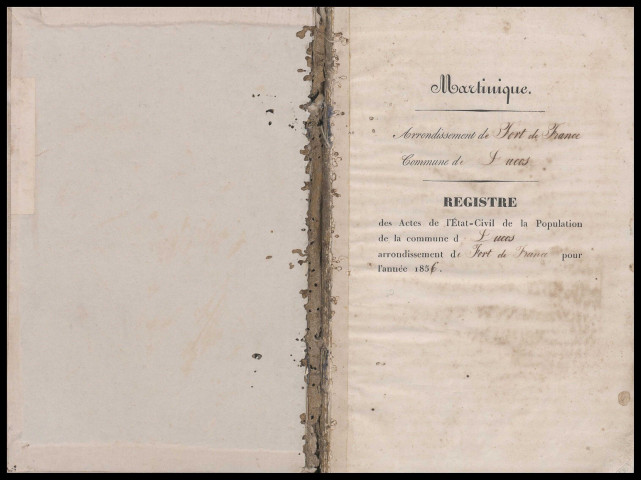 Martinique.
Arrondissement de Fort de France
Commune de Ducos
REGISTRE
des Actes de l'État-Civil de la Population
de la commune d Ducos
arrondissement de Fort de France pour
l'année 1856.